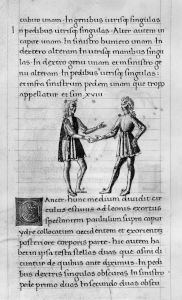 cubitu unam. In genibus utrisq; singulas
In pedibus utrisq; singulas. Alter autem in
capite unam. In sinistro humero unam. In
dextero alteram. In utrisq; manibus singu
las. In dextro genu unam. et in sinistro ge
nu alteram. In pedibus utrisq; singulas.
et infra sinistrum pedem unam que tropo
appellatur et sunt XVIII
Cancer. hunc medium dividit cir
culus estivus ad leonis exortus
spectantem paululum supra caput
ydre collocatum occidentem et exorientem
posteriore corporis parte. hic autem ha
bet in ipsa testa stellas duas que asini di
cuntur de quibus ante diximus. In pe
dibus dextris singulas obscuras. In sinistro
pede primo duas. In secundo obscu